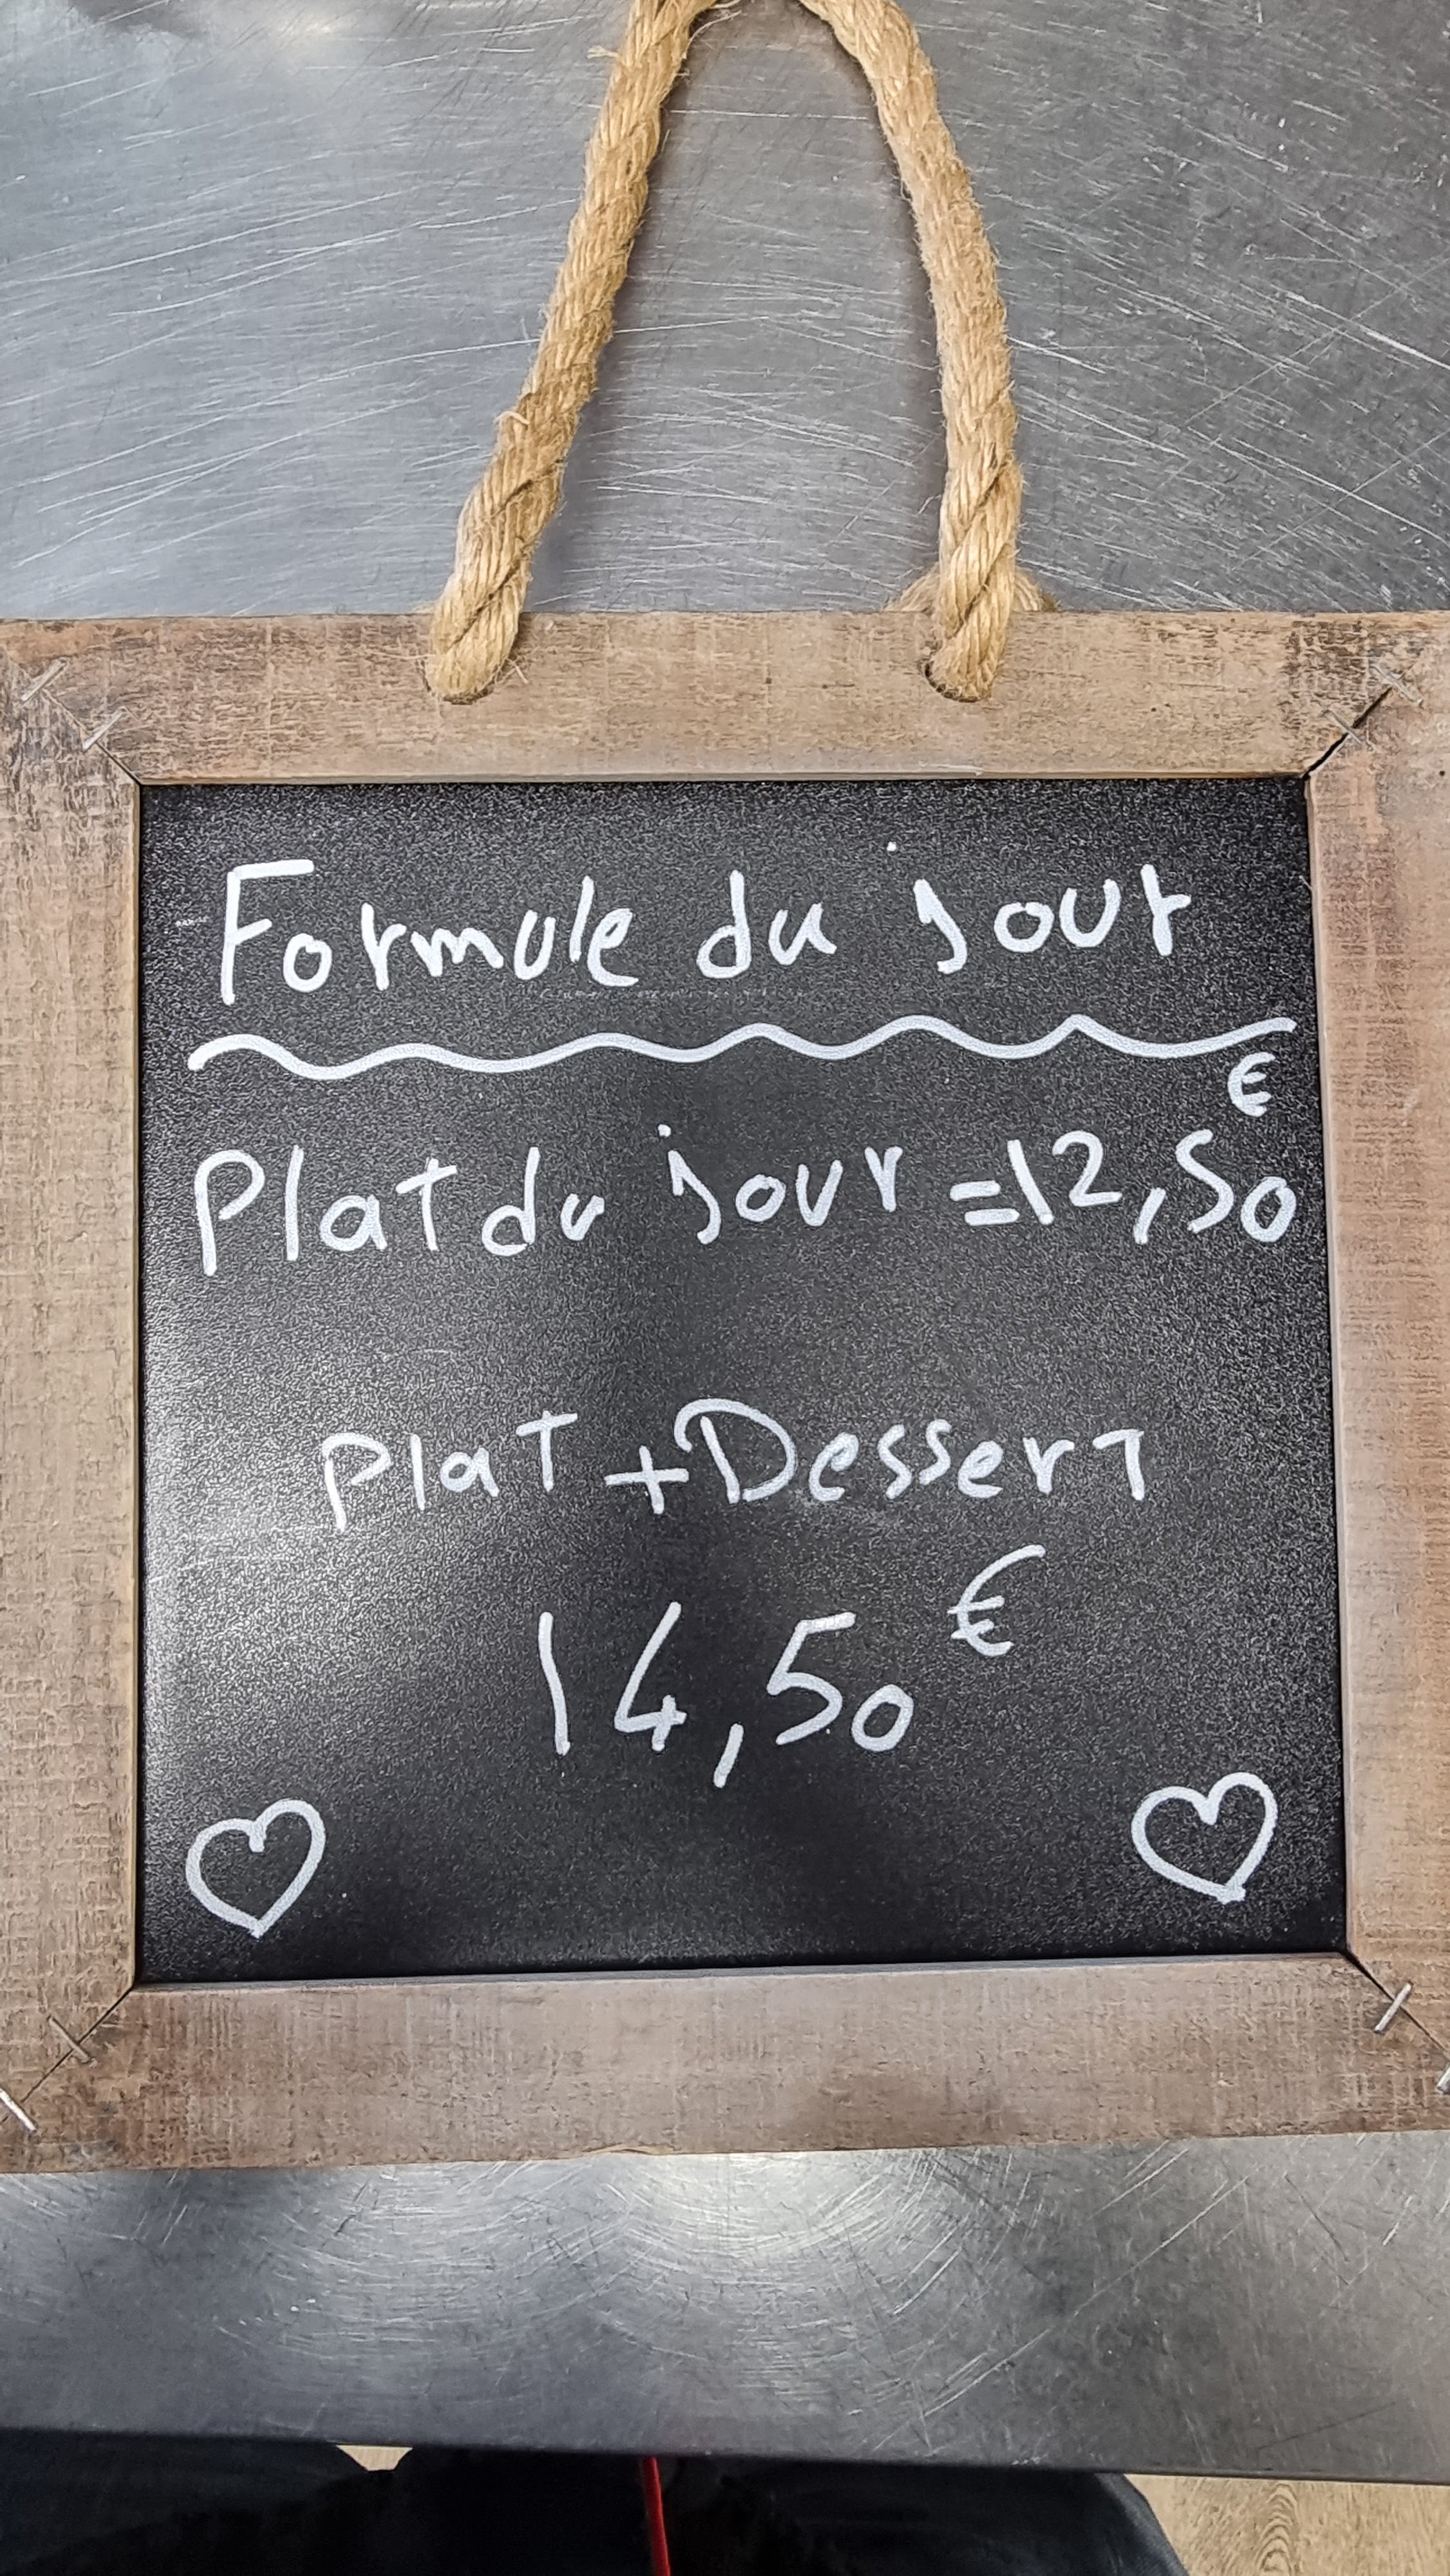 Formule du jour
Plat du jour =12,50€
Plat +Dessert
14,50€